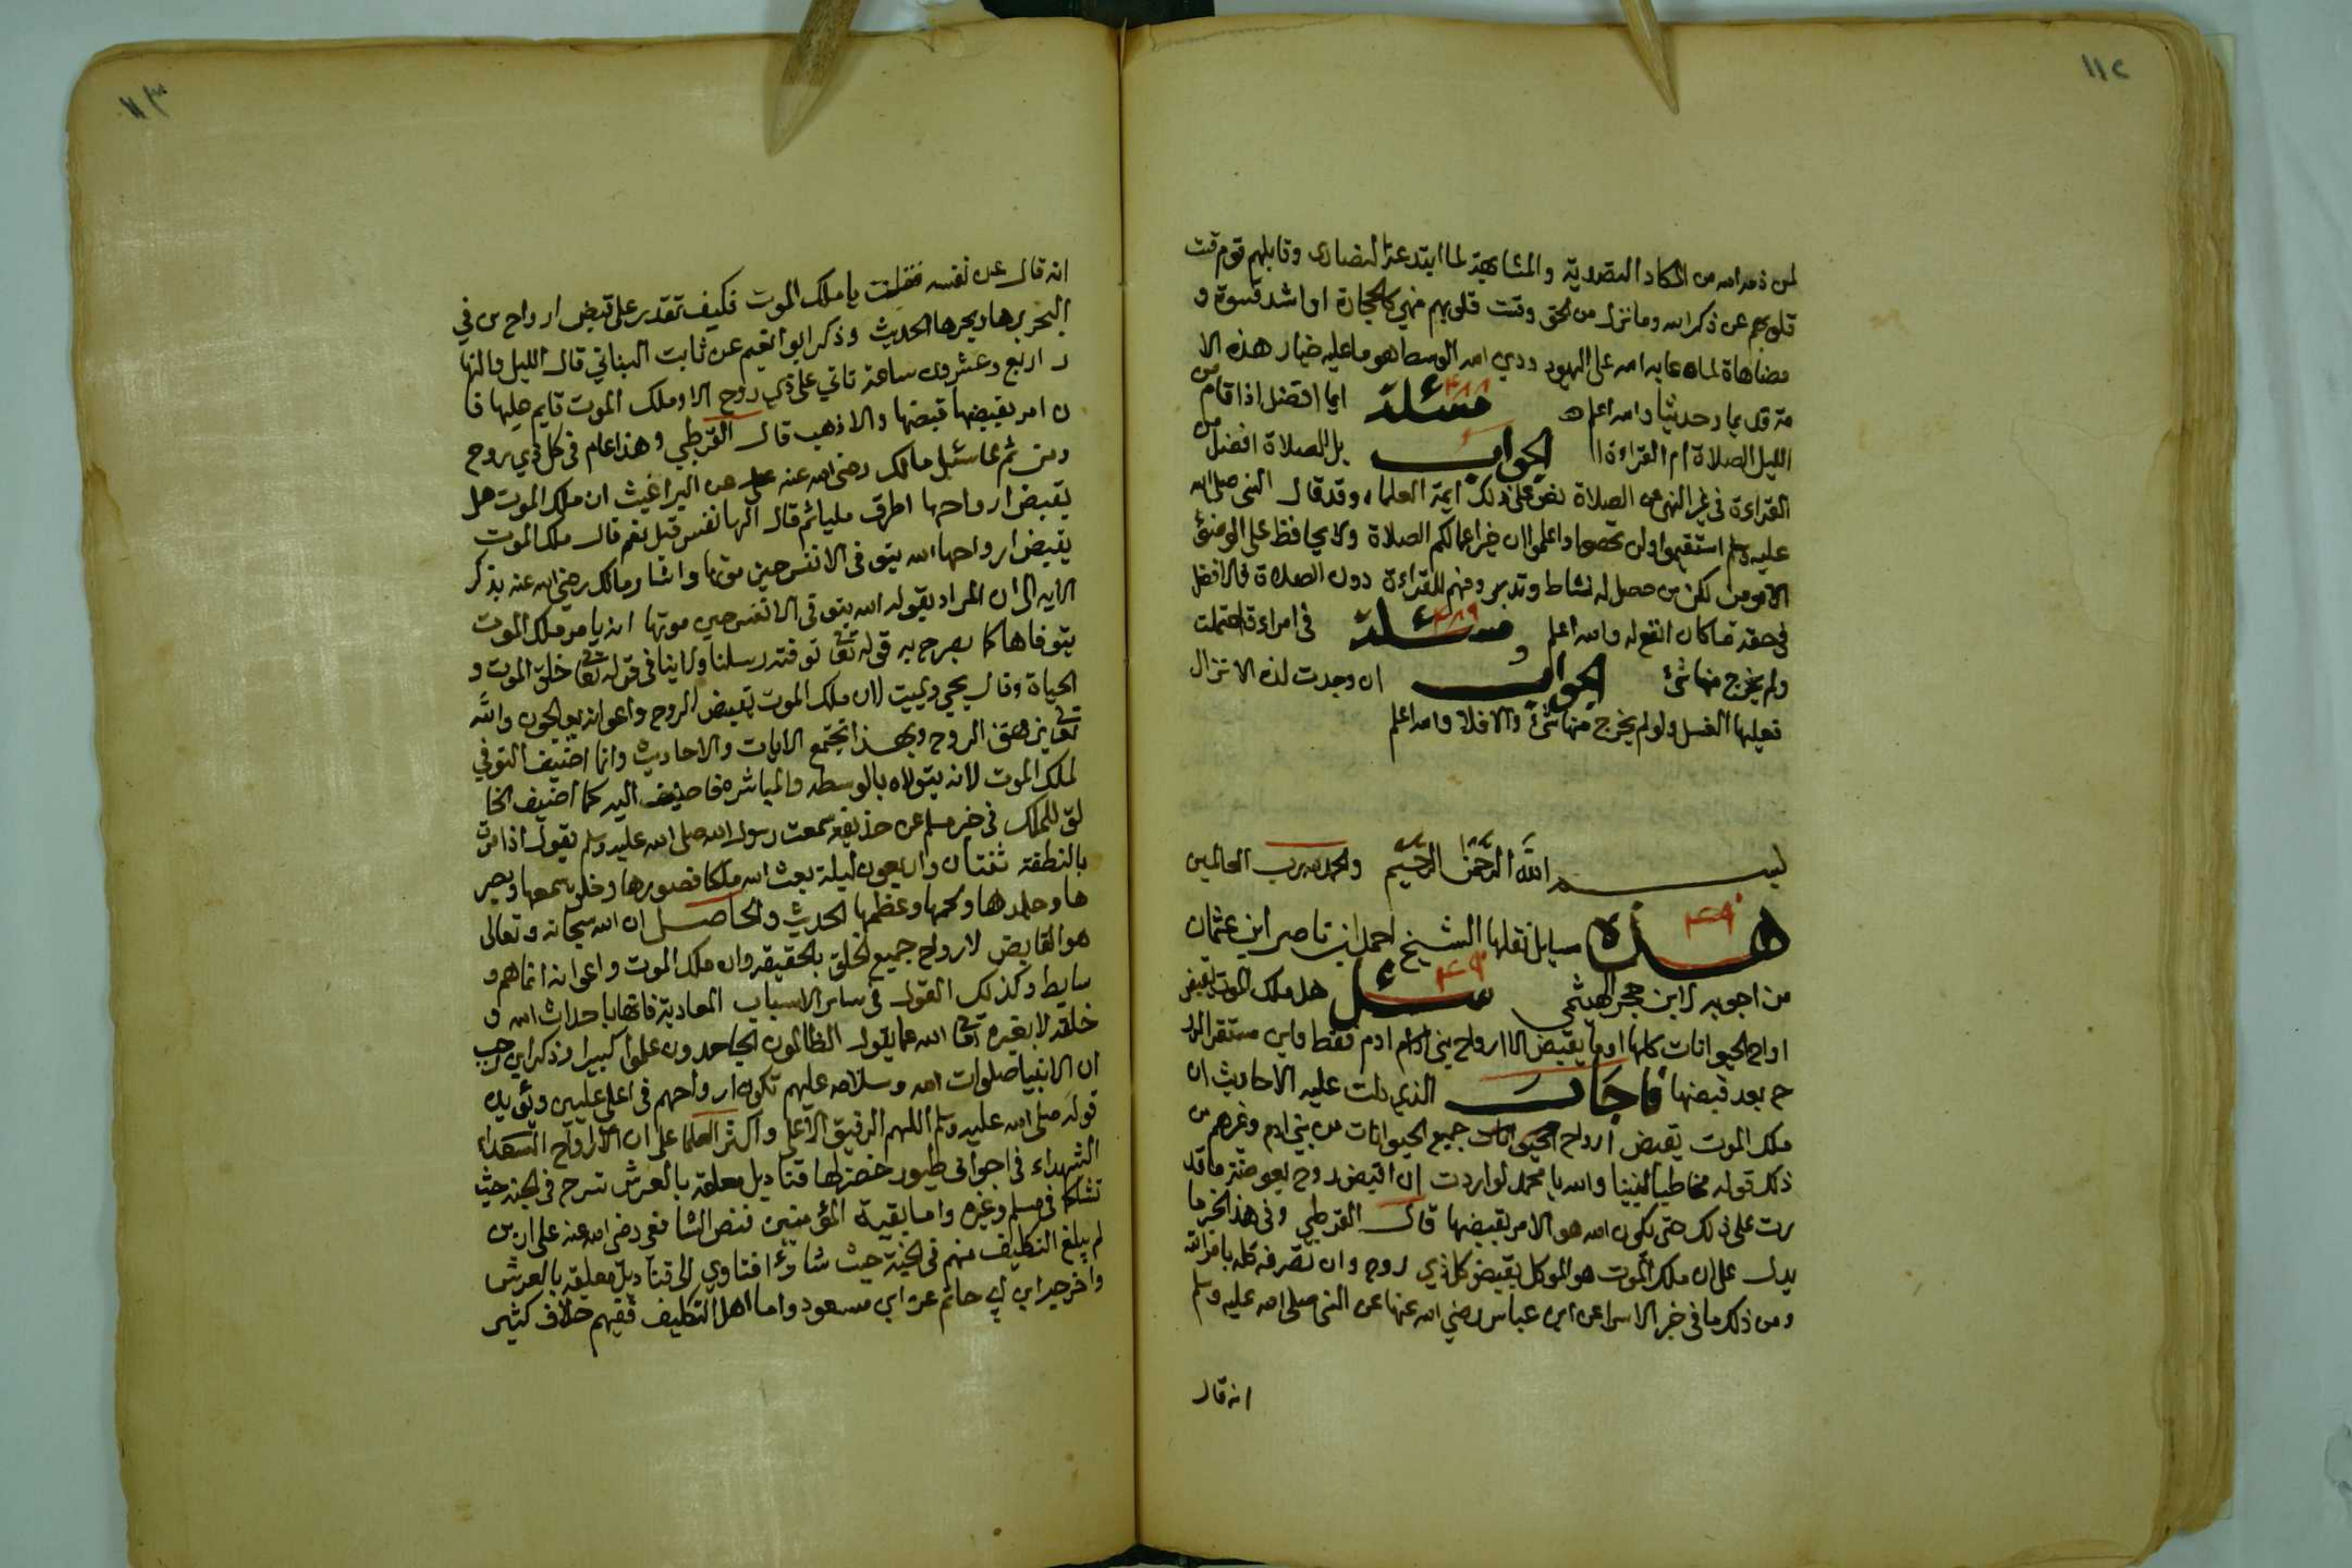 ١١٢
لمن ذمه الله من الكاد النصرية والمشابهة لما ابتدعته النصارى وقابلهم قوم قست
قلوبهم عن ذكر الله وما نزل من الحق وقست قلوبهم فهي كالحجارة او اشد قسوة و
مضاهاة لما عابه الله على اليهود ودين الله الوسط هو ما عليه خيار هذه الا
مة قديما وحديثا والله اعلم مسئلة ٤٨٨ ايما افضل اذا قام من
الليل الصلاة ام القراءة الجواب بل الصلاة افضل من
القراءة في غير النهي عن الصلاة نص على ذلك ايمة العلماء وقد قال النبي صلى الله
عليه وسلم استقيموا ولن تحصوا واعلموا ان خير اعمالكم الصلاة ولا يحافظ على الوضوء
الا مومن لكن من حصل له نشاط وتدبر وفهم للقراءة دون الصلاة فالافضل
في حقه ما كان انفع له والله اعلم مسئلة ٤٨٩ في امراءة احتملت
ولم يخرج منها شئ الجواب ان وجدت لذة الانزال
فعليها الغسل ولو لم يخرج منها شئ والا فلا والله اعلم
بسم الله الرحمن الرحيم والحمد لله رب العالمين
٤٩٠
هذه مسايل نقلها الشيخ احمد ابن ناصر ابن عثمان
من اجوبه لابن حجر الهيثمي سئل هل ملك الموت يقبض
ارواح الحيوانات كلها او ما يقبض الا ارواح بني ادم فقط واين مستقر الرو
ح بعد قبضها فاجاب الذي دلت عليه الاحاديث ان
ملك الموت يقبض ارواح جميع الحيوانات من بني ادم وغيرهم من
ذلك قوله مخاطبا لنبينا والله يا محمد لو اردت ان اقبض روح بعوضة ما قد
رت على ذلك حتى يكون الله هو الامر بقبضها قال القرطبي وفي هذا الخبر ما
يدل على ان ملك الموت هو الموكل بقبض كل ذي روح وان تصرفه كله بامر الله
ومن ذلك ما في خبر الاسراء عن ابن عباس رضي الله عنهما عن النبي صلى الله عليه وسلم
انه قال
١١٣
انه قال عن نفسه فقلت يا ملك الموت فكيف تقدر على قبض ارواح من في
البحر برها وبحرها الحديث وذكر ابو انعيم عن ثابت البناني قال الليل والنها
ر اربع وعشرون ساعة تاتي على ذي روح الا وملك الموت قايم عليها فا
ن امر بقبضها قبضها والا ذهب قال القرطبي وهذا عام في كل ذي روح
ومن ثم لما سئل مالك رضي الله عنه عن البراغيث ان ملك الموت هل
يقبض ارواحها اطرق مليا ثم قال الها نفس قيل نعم قال ملك الموت
يقبض ارواحها الله يتوفى الانفس حين موتها واشار مالك رضي الله عنه بذكر
الايه الى ان المراد بقوله الله يتوفى الانفس حين موتها انه يامر ملك الموت
يتوفاها كما يصرح به قوله تعالى توفته رسلنا ولا ينافي قوله تعالى خلق الموت و
الحياة وقال يحيي ويميت لان ملك الموت يقبض الروح واعوانه يعالجون والله
تعالى يزهق الروح وبهذا تجتمع الايات والاحاديث وانما اضيف التوفي
لملك الموت لانه يتولاه بالوسطه والمباشره فاضيف اليه كما اضيف الخا
لق للملك في خبر مسلم عن حذيفه سمعت رسول الله صلى الله عليه وسلم يقول اذا مرت
بالنطفة ثنتان واربعون ليلة بعث الله ملكا فصورها وخلق سمعها وبصر
ها وجلدها ولحمها وعظمها الحديث والحاصل ان الله سبحانه وتعالى
هو القابض لارواح جميع الخلق بالحقيقه وان ملك الموت واعوانه انما هم و
سايط وكذلك القول في سائر الاسباب العادية فانها باحداث الله و
خلقه لا بغيره تعالى الله عما يقول الظالمون الجاحدون علوا كبيرا وذكر ابن رجب
ان الانبيا صلوات الله وسلامه عليهم تكون ارواحهم في اعلى عليين ويؤيده
قوله صلى الله عليه وسلم اللهم الرفيق الاعلى واكثر العلما على ان الارواح الشهداء
الشهداء في اجواف طيور خضر لها قناديل معلقه بالعرش تسرح في الجنه حيث
تشاء كما في مسلم وغيره واما بقية المؤمنين فنص الشافعي رضي الله عنه على ان من
لم يبلغ التكليف منهم في الجنة حيث شاؤا فتاوي الى قناديل معلقه بالعرش
واخرجه ابن ابي حاتم عن ابن مسعود واما اهل التكليف ففيهم خلاف كثير